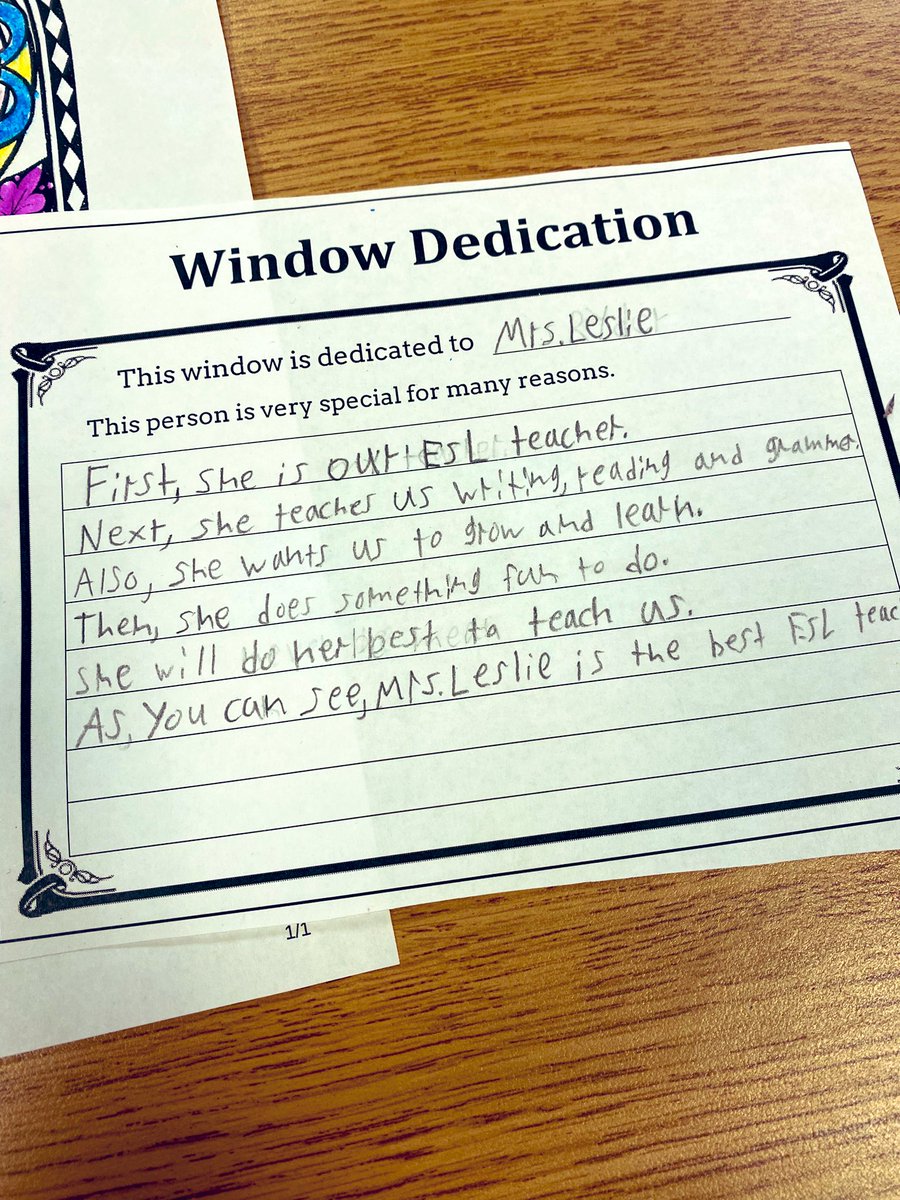 Window Dedication
This window is dedicated to Mrs. Leslie
This person is very special for many reasons.
First, she is our ESL teacher.
Next, she teaches us writing, reading and grammer.
Also, she wants us to grow and learn.
Then, she does something fun to do.
she will do her best to teach us.
As, You can see, Mrs. Leslie is the best ESL teac
1/1